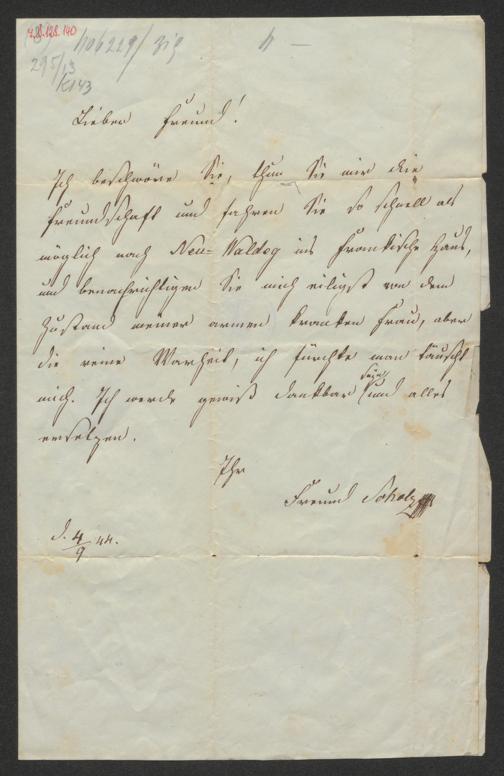 Z.B. 128.140
hob 229/ zig h —
295/13
K143
Lieber Freund!
Ich beschwöre Sie, thun Sie mir die
Freundschaft und fahren Sie so schnell als
möglich nach Neu-Waldeg ins Frankische Haus,
und benachrichtigen Sie mich eiligst von dem
Zustand meiner armen kranken Frau, aber
die reine Warheit, ich fürchte man täuscht
mich. Ich werde gewiß dankbar sein und alles
ersetzen.
Ihr
Freund Scholz
d. 4/9 44.